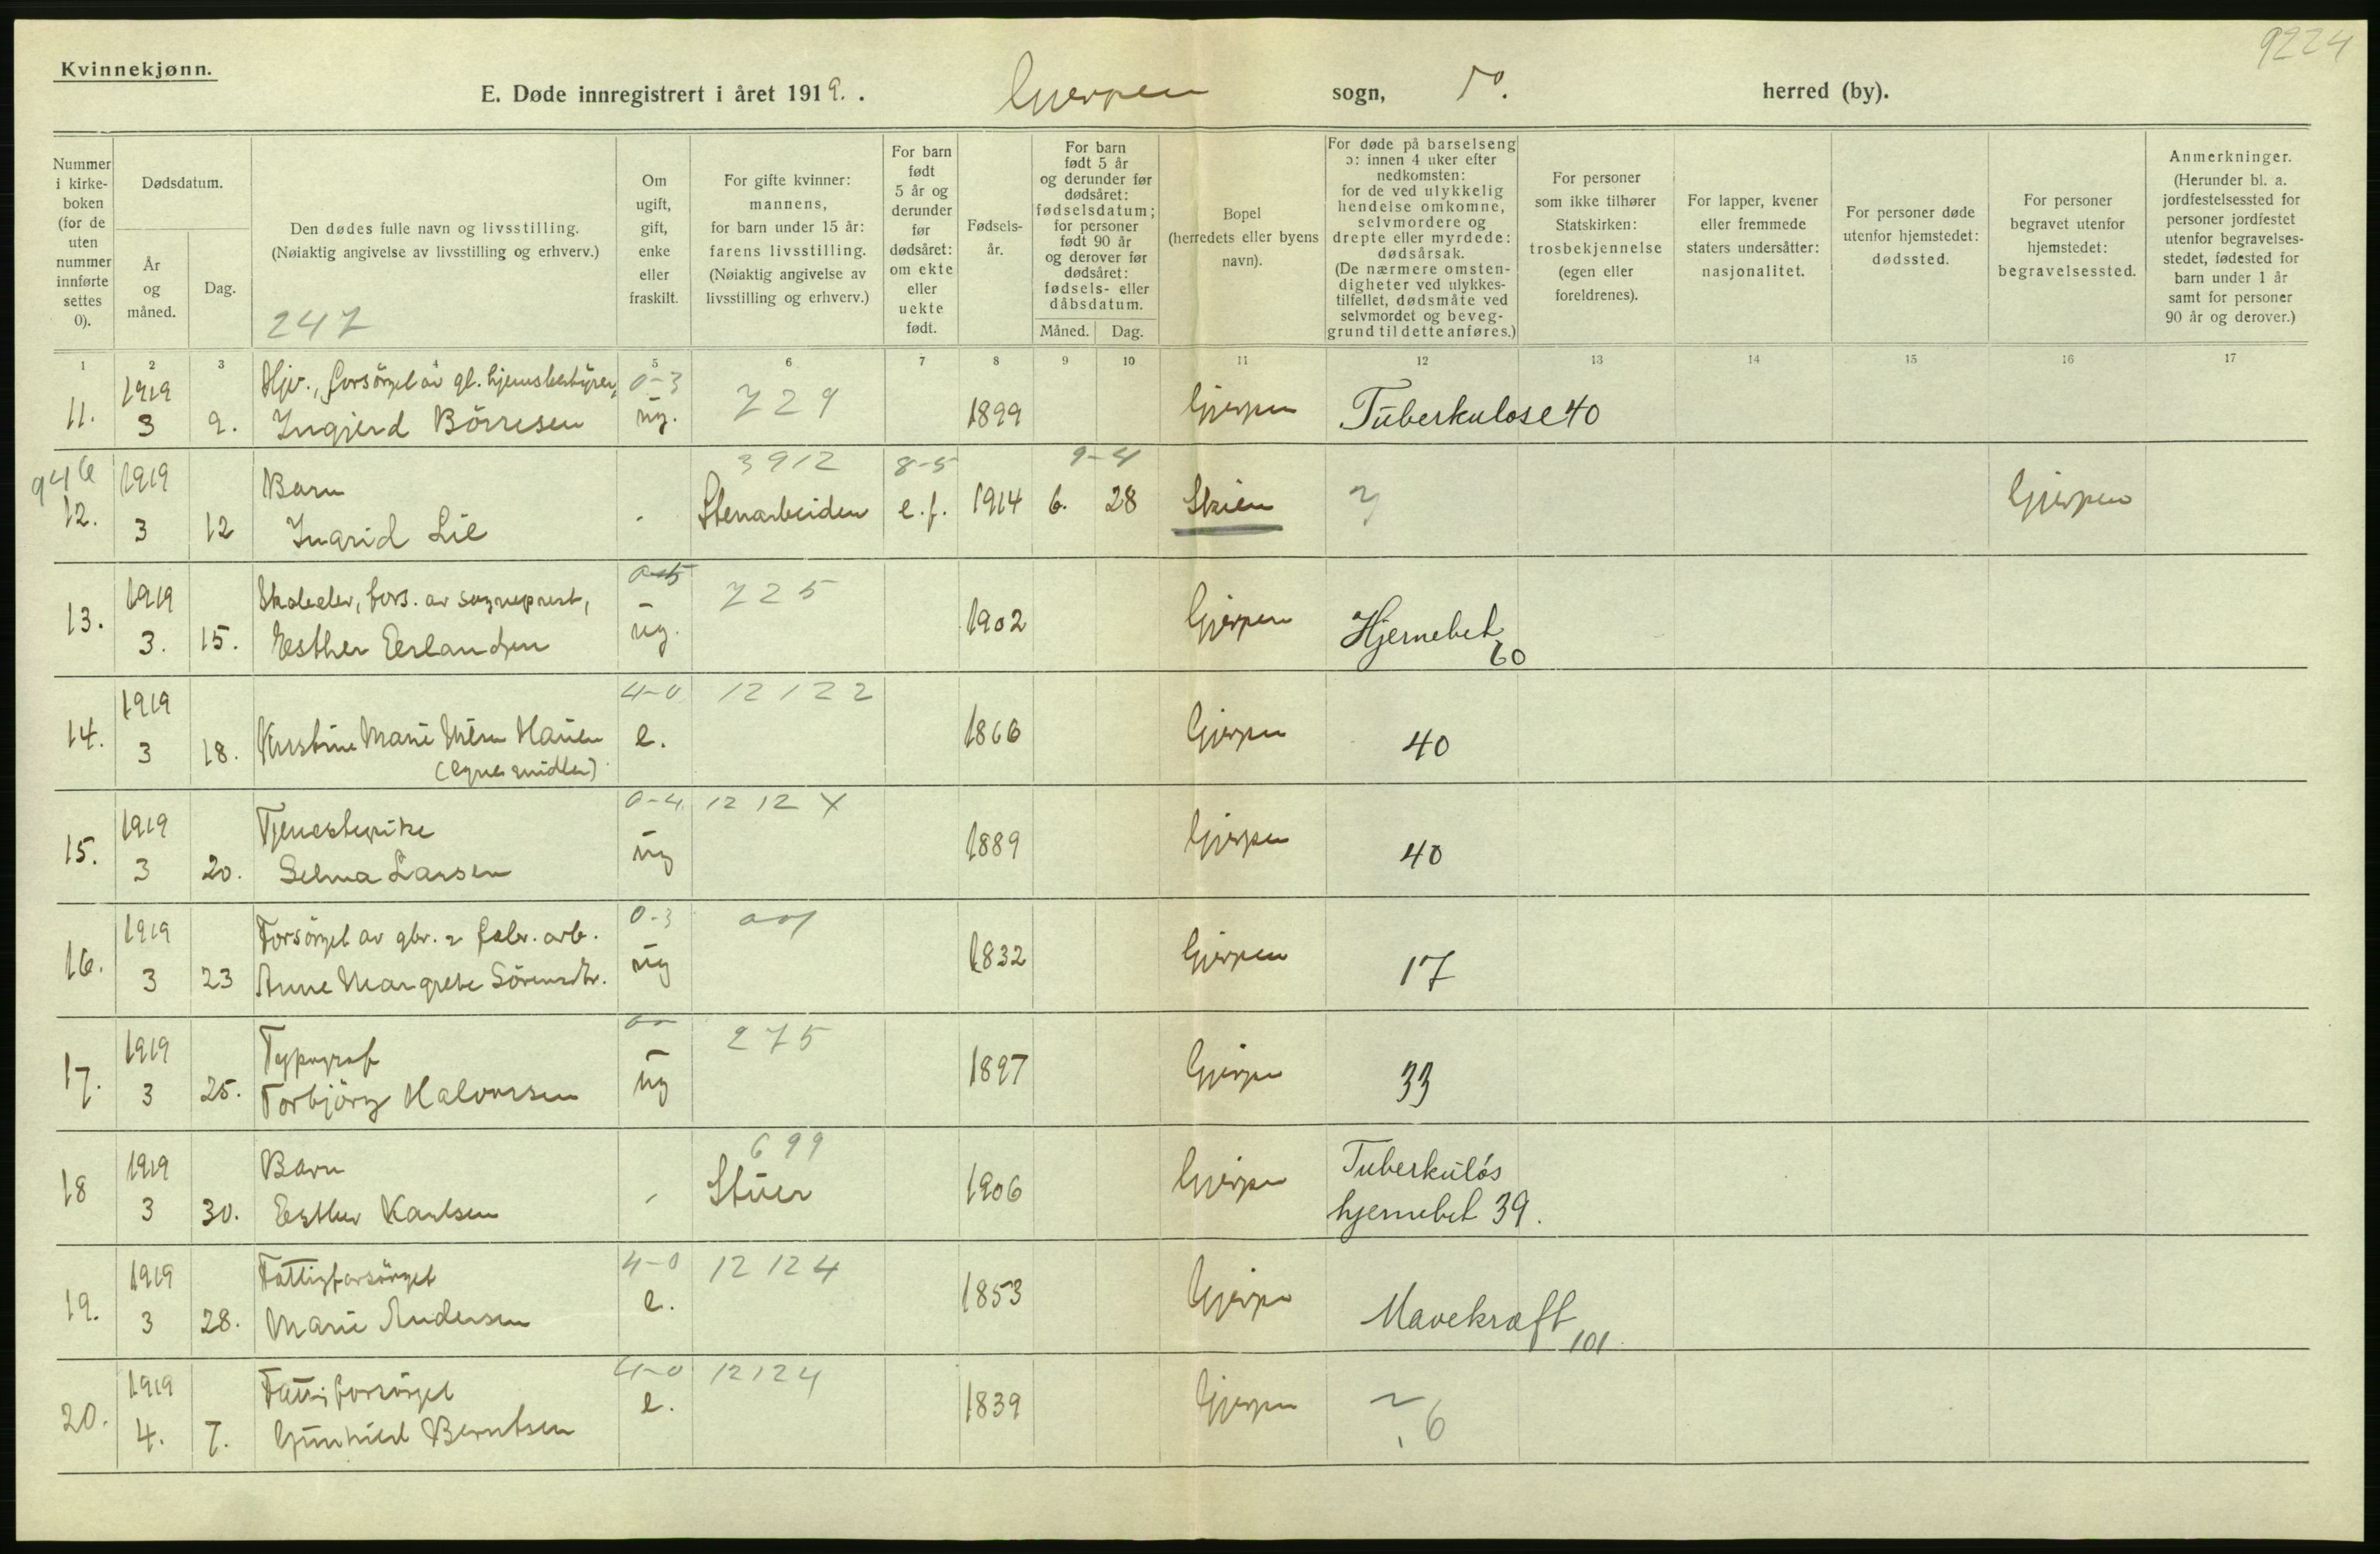 9224
Kvinnekjønn.
E. Døde innregistrert i året 1919. . Gjerpen sogn, do. herred (by).
Nummer i kirke-boken (for de uten nummer innførte settes 0).
Dødsdatum.
År og måned.
Dag.
Den dødes fulle navn og livsstilling.
(Nøiaktig angivelse av livsstilling og erhverv.)
247
Om ugift, gift, enke eller fraskilt.
For gifte kvinner: mannens, for barn under 15 år: farens livsstilling. (Nøiaktig angivelse av livsstilling og erhverv.)
For barn født 5 år og derunder før dødsåret: om ekte eller uekte født.
Fødsels-år.
For barn født 5 år og derunder før dødsåret: fødselsdatum; for personer født 90 år og derover før dødsåret: fødsels- eller dåbsdatum.
Måned. Dag.
Bopel (herredets eller byens navn).
For døde på barselseng ɔ: innen 4 uker efter nedkomsten: for de ved ulykkelig hendelse omkomne, selvmordere og drepte eller myrdede: dødsårsak. (De nærmere omsten-digheter ved ulykkes-tilfellet, dødsmåte ved selvmordet og beveg-grund til dette anføres.)
For personer som ikke tilhører Statskirken: trosbekjennelse (egen eller foreldrenes).
For lapper, kvener eller fremmede staters undersåtter: nasjonalitet.
For personer døde utenfor hjemstedet: dødssted.
For personer begravet utenfor hjemstedet: begravelsessted.
Anmerkninger. (Herunder bl. a. jordfestelsessted for personer jordfestet utenfor begravelses-stedet, fødested for barn under 1 år samt for personer 90 år og derover.)
1 2 3 4 5 6 7 8 9 10 11 12 13 14 15 16 17
1919 Hjv., forsørget av gl. hjemsbestyrer, 0-3 729
11. 3 9. Ingjerd Börresen ug. 1899 Gjerpen Tuberkulose 40
946 1919 Barn 3912 8-5 9-4
12. 3 12 Ingrid Lie - Stenarbeider e.f. 1914 6. 28 Skien ? Gjerpen
1919 Skoleelev, fors. av sogneprest, 0-5 725
13. 3. 15. Esther Erlandsen ug. 1902 Gjerpen Hjernebet 60
1919 4-0 12122
14. 3 18. Kirstine Marie Hansen e. 1866 Gjerpen 40
(egne midler)
1919 Tjenestepike 0-4 12 12 X
15. 3 20. Selma Larsen ug 1889 Gjerpen 40
1919 Forsørget av gbr. & fabr. arb. 0-3
16. 3 23 Anne Margrete Sörensdtr. ug 1832 Gjerpen 17
1919 Typograf 275
17. 3 25. Torbjörg Halvorsen ug 1897 Gjerpen 33
1919 Barn 699
18 3 30. Esther Karlsen - Stuer 1906 Gjerpen Tuberkuløs hjernebet 39.
1919 Fattigforsörget 4-0 12 124
19. 3 28. Marie Andersen e. 1853 Gjerpen Mavekræft 101
1919 Fattigforsörget 4-0 12124
20. 4. 7. Gunhild Berntsen e. 1839 Gjerpen ? 6